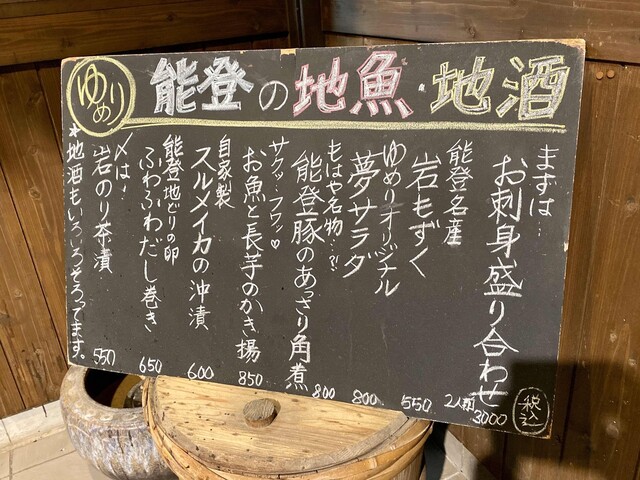 ゆめり
能登の地魚・地酒
まずは…
お刺身盛り合わせ
2人前
3000
税込
能登名産
岩もずく
550
ゆめりオリジナル
夢サラダ
800
もはや名物…?!
能登豚のあっさり角煮
800
サクッ・フワッ♡
お魚と長芋のかき揚
850
自家製
スルメイカの沖漬
600
能登地どりの卵
ふわふわだし巻き
650
〆は!
岩のり茶漬
550
*地酒もいろいろそろってます。